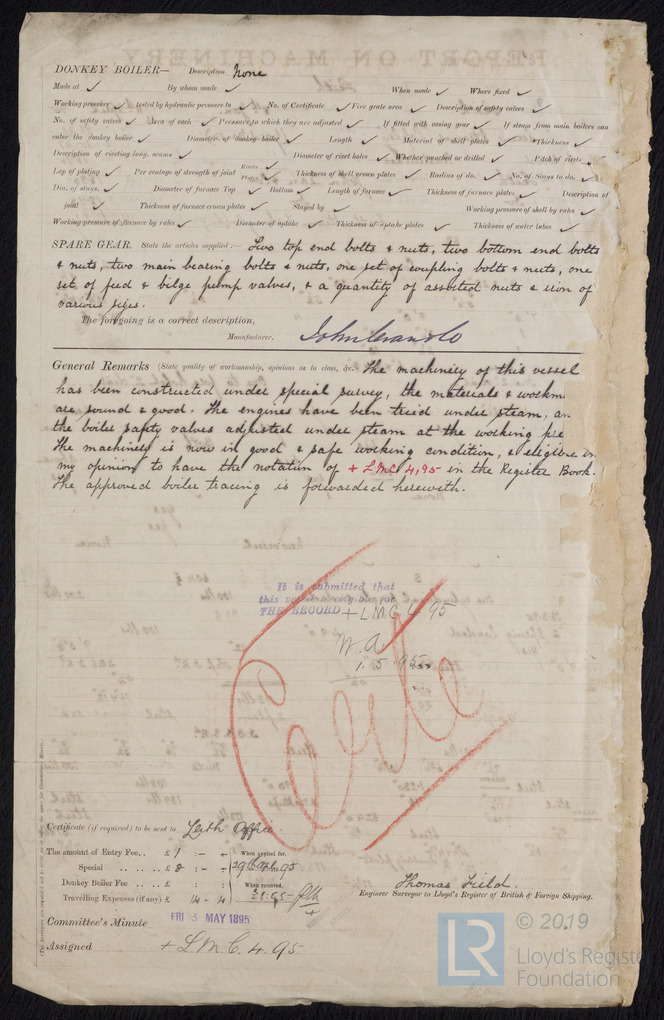 DONKEY BOILER— Description None
Made at ✓ By whom made ✓ When made ✓ Where fixed ✓
Working pressure ✓ tested by hydraulic pressure to ✓ No. of Certificate ✓ Fire grate area ✓ Description of safety valves ✓
No. of safety valves ✓ Area of each ✓ Pressure to which they are adjusted ✓ If fitted with easing gear ✓ If steam from main boilers can
enter the donkey boiler ✓ Diameter of donkey boiler ✓ Length ✓ Material of shell plates ✓ Thickness ✓
Description of riveting long. seams ✓ Diameter of rivet holes ✓ Whether punched or drilled ✓ Pitch of rivets
Lap of plating ✓ Per centage of strength of joint Rivets ✓ Plates Thickness of shell crown plates ✓ Radius of do. ✓ No. of Stays to do. ✓
Dia. of stays. ✓ Diameter of furnace Top ✓ Bottom ✓ Length of furnace ✓ Thickness of furnace plates ✓ Description of
joint ✓ Thickness of furnace crown plates ✓ Stayed by ✓ Working pressure of shell by rules ✓
Working pressure of furnace by rules ✓ Diameter of uptake ✓ Thickness of uptake plates ✓ Thickness of water tubes ✓
SPARE GEAR. State the articles supplied:— Two top end bolts & nuts, two bottom end bolts
& nuts, two main bearing bolts & nuts, one set of coupling bolts & nuts, one
set of feed & bilge pump valves, & a quantity of assorted nuts & iron of
various sizes.
The foregoing is a correct description,
Manufacturer. John Cran & Co
General Remarks (State quality of workmanship, opinions as to class, &c. The machinery of this vessel
has been constructed under special survey, the materials & workm
are sound & good. The engines have been tried under steam, an
the boiler safety valves adjusted under steam at the working pre
The machinery is now in good & safe working condition, & eligible in
my opinion to have the notation of + LMC 4,95 in the Register Book.
The approved boiler tracing is forwarded herewith.
It is submitted that
this vessel is eligible for
THE RECORD + LMC 4 95
1.5.95
Certificate (if required) to be sent to Leith Office.
The amount of Entry Fee.. £ 1 : - : - When applied for,
Special .. .. .. £ 8 : - : - 95
Donkey Boiler Fee .. .. £ : : When received,
Travelling Expenses (if any) £ : 14 : 4
Thomas Field.
Engineer Surveyor to Lloyd's Register of British & Foreign Shipping.
Committee's Minute FRI 3 MAY 1895
Assigned + L.M.C. 4.95
© 2019
LR Lloyd's Register
Foundation